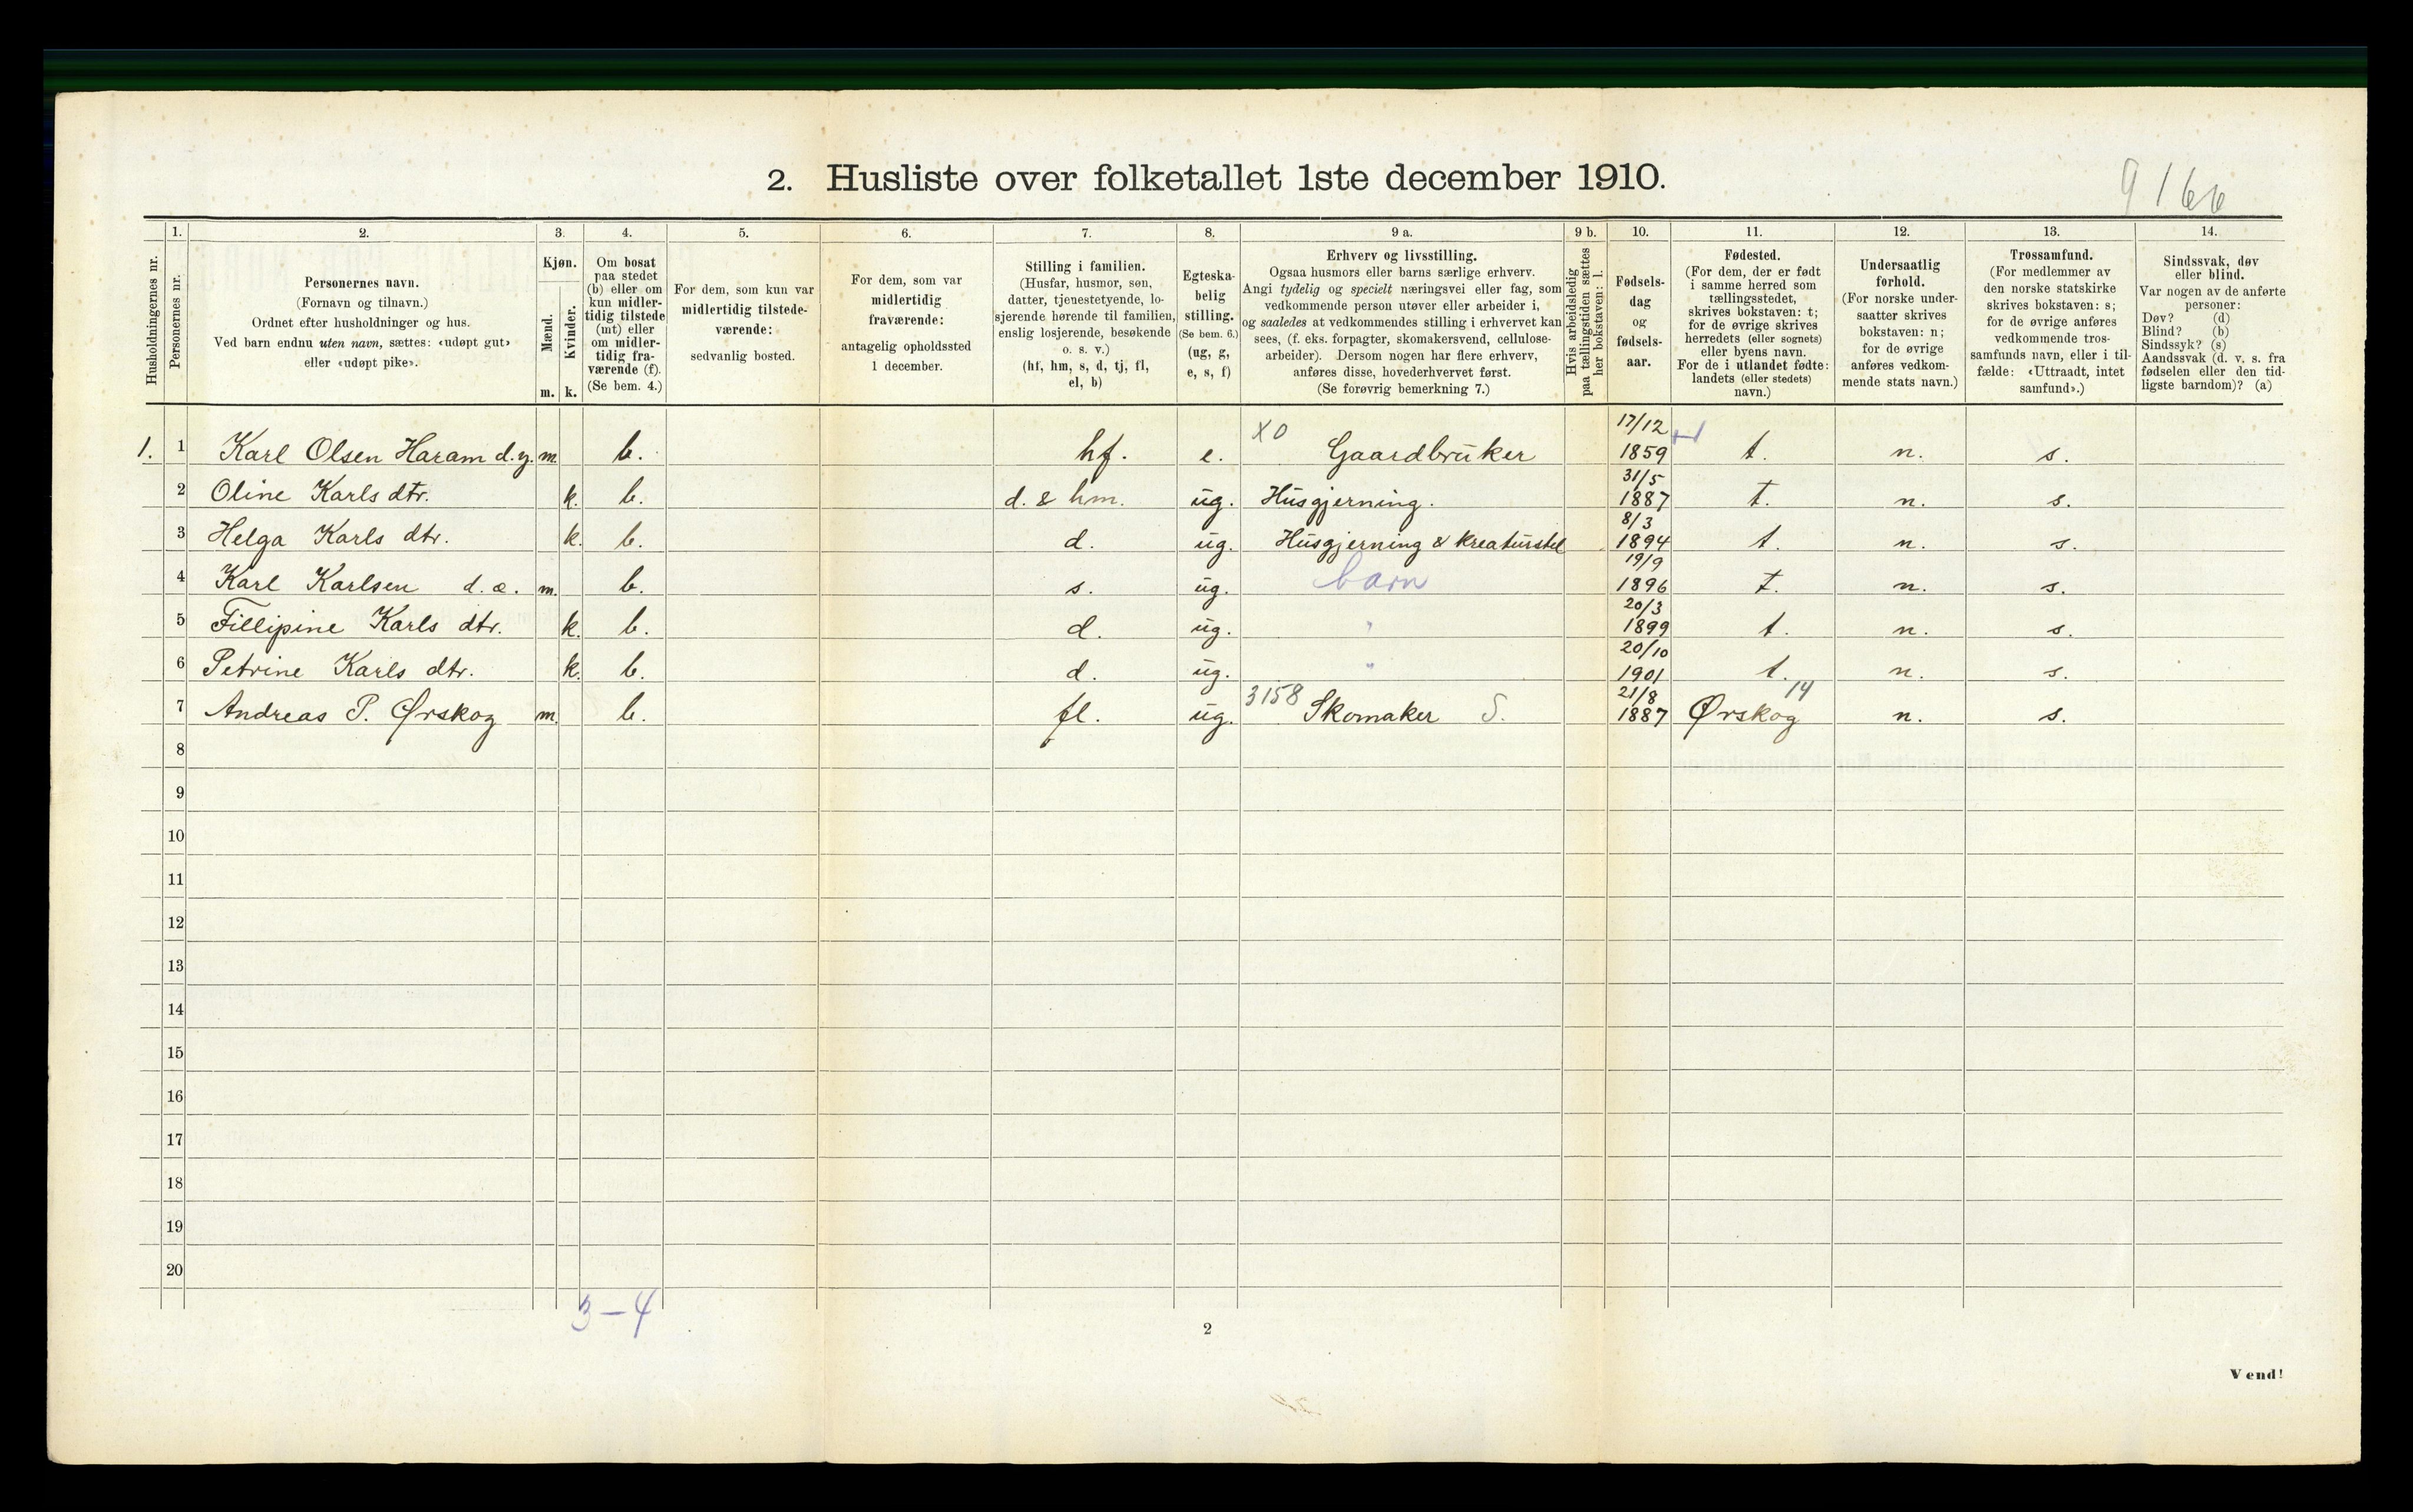 2. Husliste over folketallet 1ste december 1910.
9166
Husholdningernes nr.
1.
Personernes nr.
2.
Personernes navn.
(Fornavn og tilnavn.)
Ordnet efter husholdninger og hus.
Ved barn endnu uten navn, sættes: «udøpt gut»
eller «udøpt pike».
3.
Kjøn.
Mænd.
Kvinder.
m. k.
4.
Om bosat
paa stedet
(b) eller om
kun midler-
tidig tilstede
(mt) eller
om midler-
tidig fra-
værende (f).
(Se bem. 4.)
5.
For dem, som kun var
midlertidig tilstede-
værende:
sedvanlig bosted.
6.
For dem, som var
midlertidig
fraværende:
antagelig opholdssted
1 december.
7.
Stilling i familien.
(Husfar, husmor, søn,
datter, tjenestetyende, lo-
sjerende hørende til familien,
enslig losjerende, besøkende
o. s. v.)
(hf, hm, s, d, tj, fl,
el, b)
8.
Egteska-
belig
stilling.
(Se bem. 6.)
(ug, g,
e, s, f)
9 a.
Erhverv og livsstilling.
Ogsaa husmors eller barns særlige erhverv.
Angi tydelig og specielt næringsvei eller fag, som
vedkommende person utøver eller arbeider i,
og saaledes at vedkommendes stilling i erhvervet kan
sees, (f. eks. forpagter, skomakersvend, cellulose-
arbeider). Dersom nogen har flere erhverv,
anføres disse, hovederhvervet først.
(Se forøvrig bemerkning 7.)
9 b.
Hvis arbeidsledig
paa tællingstiden sættes
her bokstaven: l.
10.
Fødsels-
dag
og
fødsels-
aar.
11.
Fødested.
(For dem, der er født
i samme herred som
tællingsstedet,
skrives bokstaven: t;
for de øvrige skrives
herredets (eller sognets)
eller byens navn.
For de i utlandet fødte:
landets (eller stedets)
navn.)
12.
Undersaatlig
forhold.
(For norske under-
saatter skrives
bokstaven: n;
for de øvrige
anføres vedkom-
mende stats navn.)
13.
Trossamfund.
(For medlemmer av
den norske statskirke
skrives bokstaven: s;
for de øvrige anføres
vedkommende tros-
samfunds navn, eller i til-
fælde: «Uttraadt, intet
samfund».)
14.
Sindssvak, døv
eller blind.
Var nogen av de anførte
personer:
Døv? (d)
Blind? (b)
Sindssyk? (s)
Aandssvak (d. v. s. fra
fødselen eller den tid-
ligste barndom)? (a)
1. 1 Karl Olsen Haram d.y. m. b. hf. e. X0 Gaardbruker 17/12 1859 t. n. s.
2 Oline Karls dtr. k. b. d. & hm. ug. Husgjerning. 31/5 1887 t. n. s.
3 Helga Karls dtr. k. b. d. ug. Husgjerning & kreaturstel 8/3 1894 t. n. s.
4 Karl Karlsen d. æ. m. b. s. ug. barn 19/9 1896 t. n. s.
5 Fillipine Karls dtr. k. b. d. ug. " 20/3 1899 t. n. s.
6 Petrine Karls dtr. k. b. d. ug. " 20/10 1901 t. n. s.
7 Andreas P. Ørskog m. b. fl. ug. 3158 Skomaker S. 21/8 1887 Ørskog 14 n. s.
8
9
10
11
12
13
14
15
16
17
18
19
20
3-4
2
Vend!